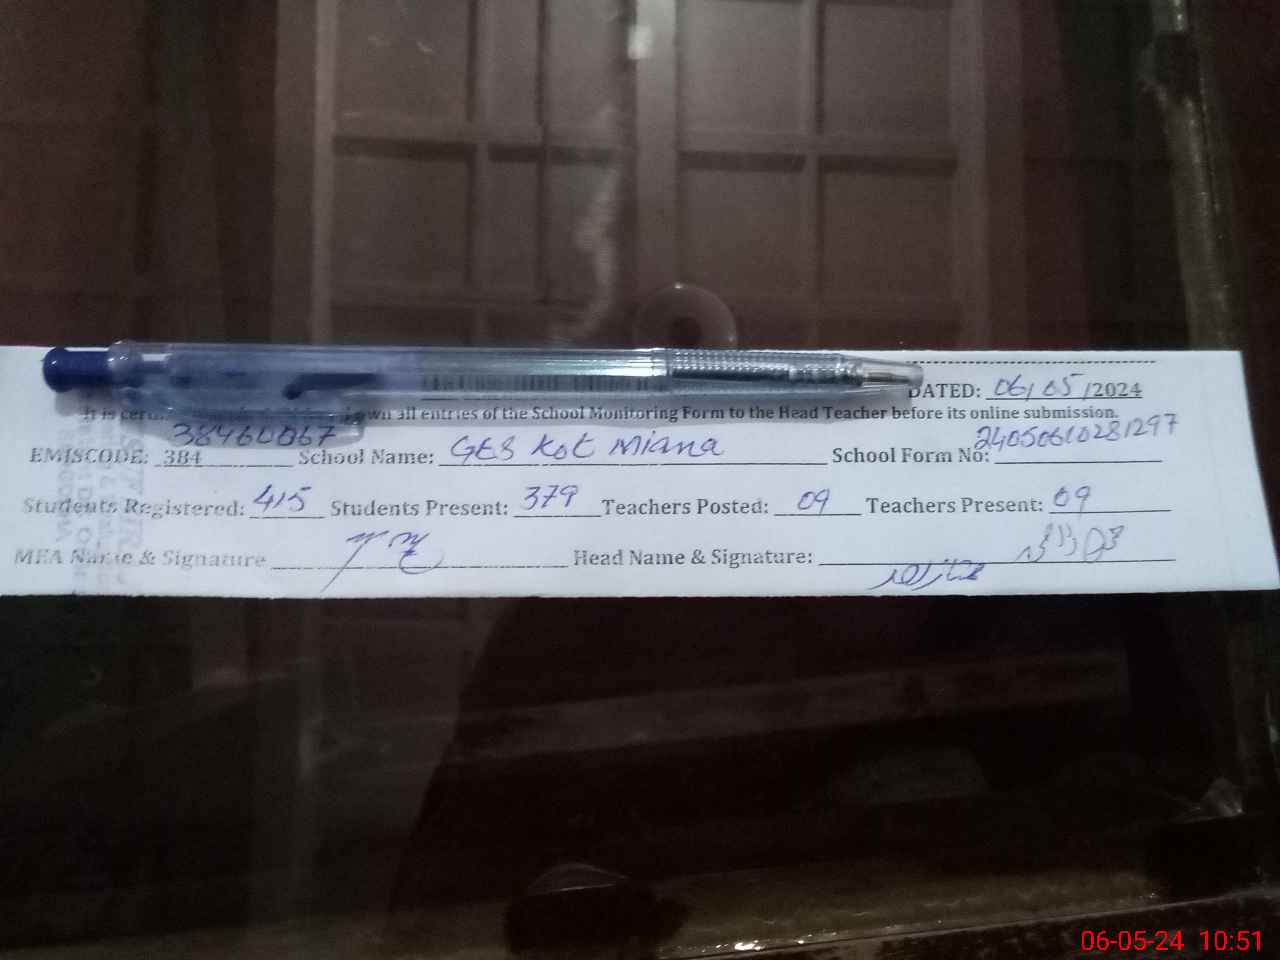 DATED: 06/05/2024
It is wn all entries of the School Monitoring Form to the Head Teacher before its online submission.
38460067 24050610281297
EMISCODE: 384 School Name: GES Kot Miana School Form No:
Students Registered: 415 Students Present: 379 Teachers Posted: 09 Teachers Present: 09
MEA Name & Signature Head Name & Signature:
06-05-24 10:51